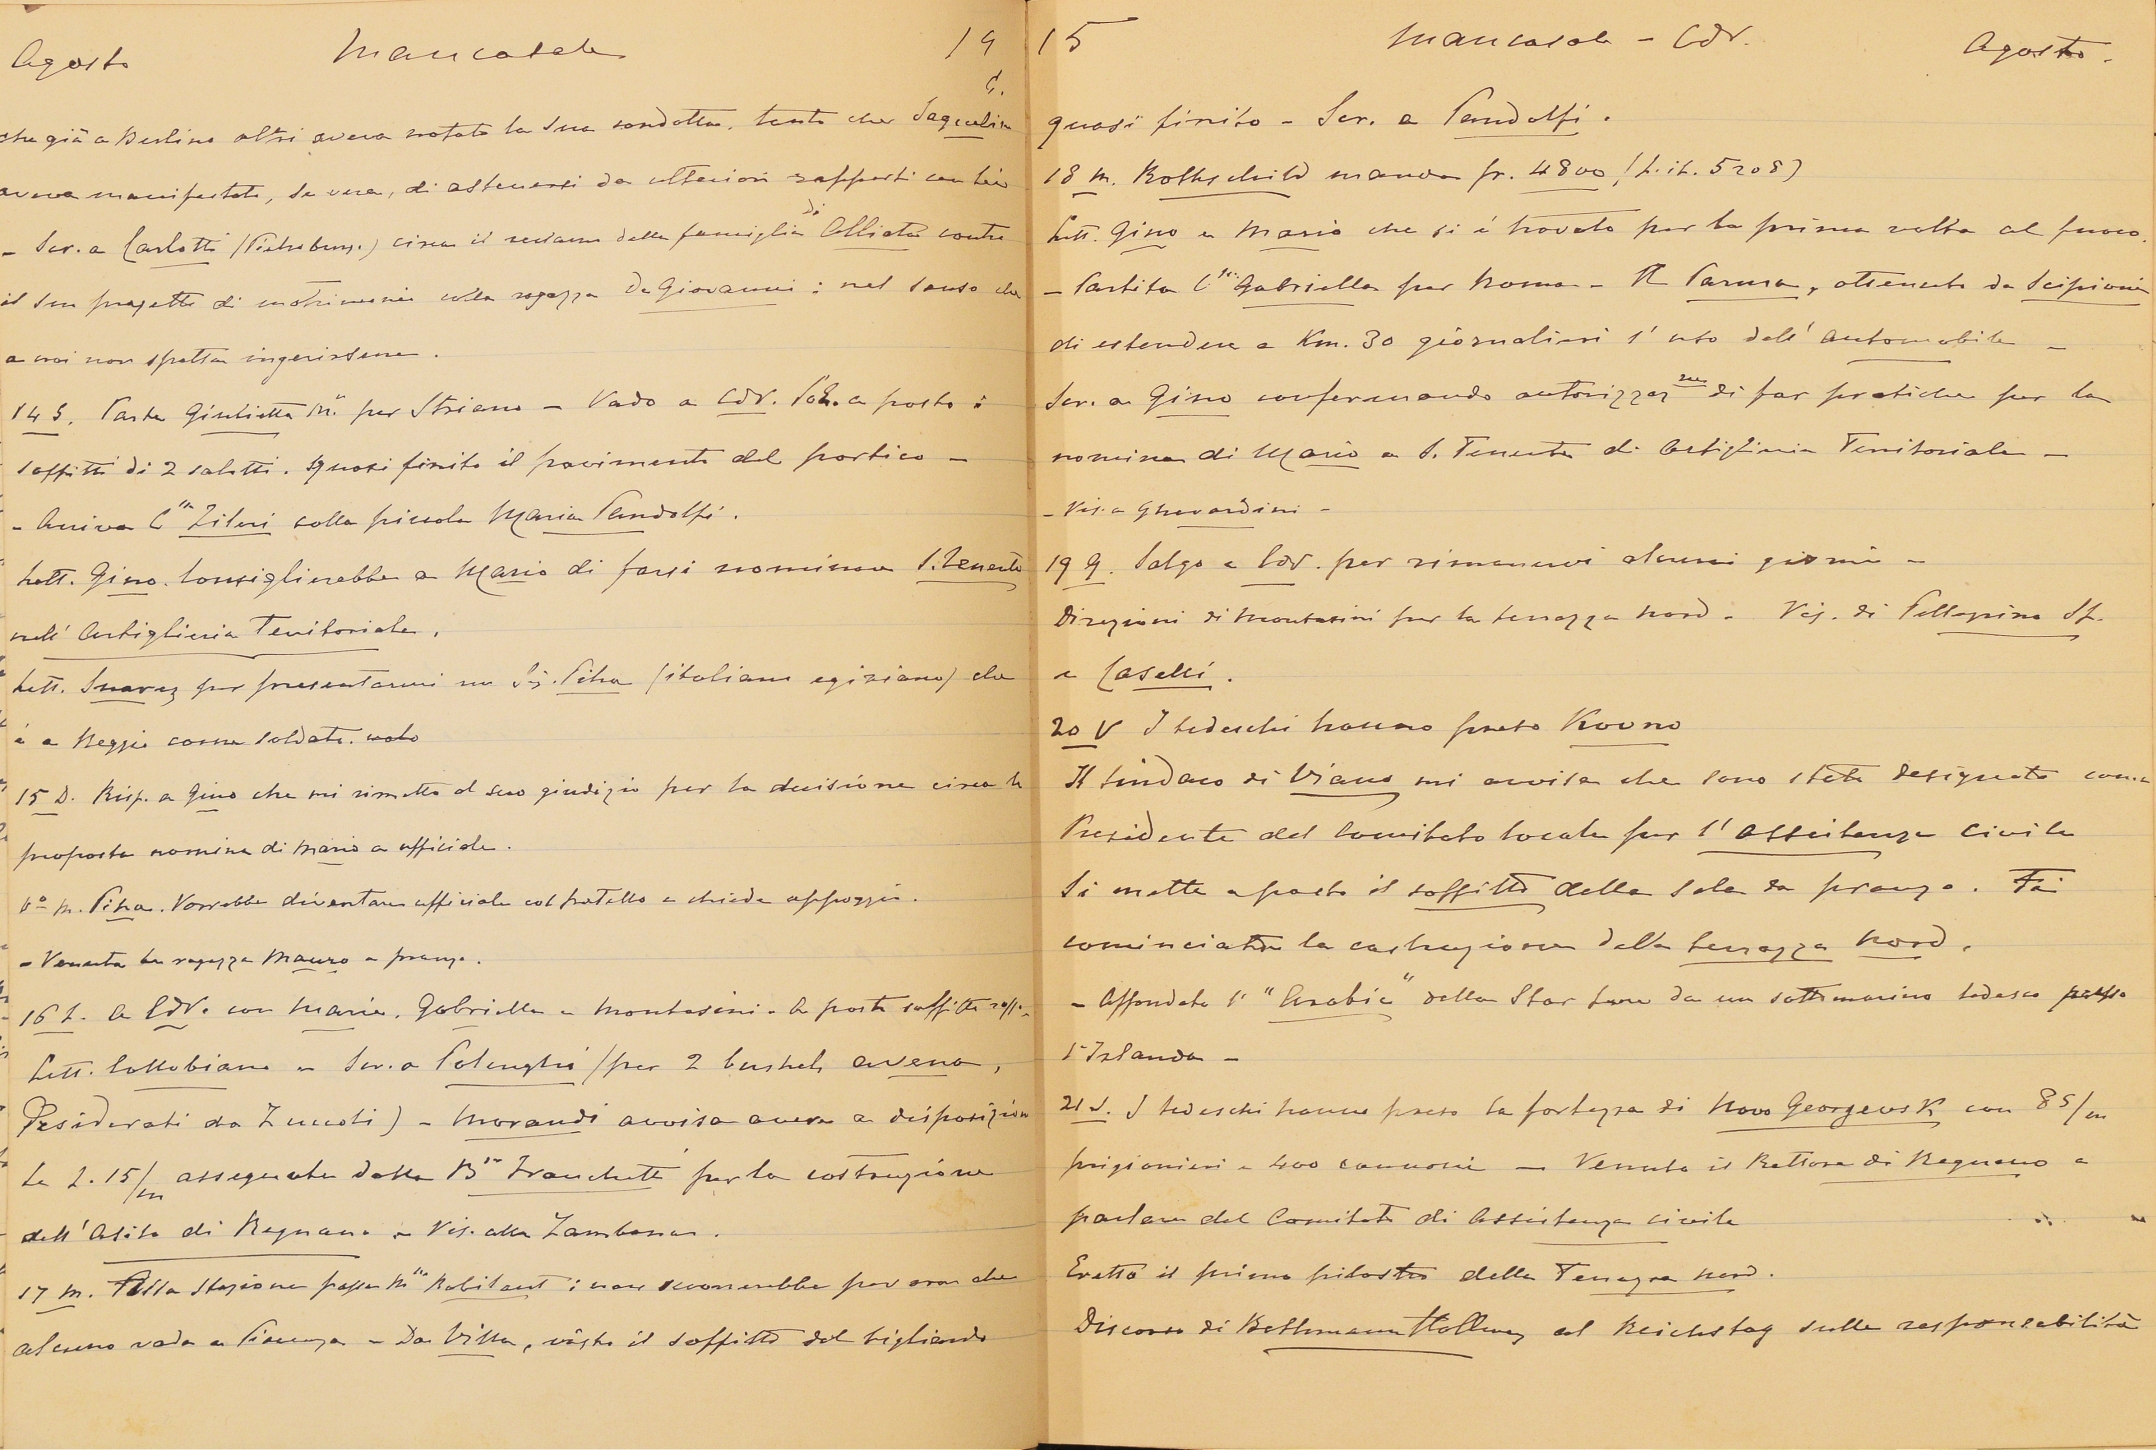 Agosto Mancasale 19
che già a Berlino altri aveva notato la sua condotta, tanto che
aveva manifestato, se vera, di astenersi da ulteriori rapporti con lui
- Scr. a Carlotti (Pietroburgo) circa il reclamo della famiglia di Alliata contro
il suo progetto di matrimonio colla ragazza De Giovanni: nel senso che
a noi non spetta ingerirsene.
14 S. Parte Giulietta M. per Striano - Vado a CdV. a posto i
soffitti di 2 salotti. Quasi finito il pavimento del portico -
- Arriva Cssa Zileri colla piccola Maria Pandolfi.
Lett. Gino. Consiglierebbe a Mario di farsi nominare S. Tenente
nell' Artiglieria Territoriale.
Lett. Suarez per presentarmi un Sig. Piha (italiano egiziano) che
è a Reggio come soldato.
15 D. Risp. a Gino che mi rimetto al suo giudizio per la decisione circa la
proposta nomina di Mario a ufficiale.
Piha. Vorrebbe diventare ufficiale col fratello e chiede appoggio.
- Venuta la ragazza Mauro a pranzo.
16 L. A CdV. con Maria, Gabriella e Montasini. A posto soffitti
Lett. Collobiano - Scr. a Polenghi (per 2 bushels avena,
desiderati da Zuccoli) - Morandi avvisa avere a disposizione
le L. 15/m assegnate dalla Bssa Franchetti per la costruzione
dell' Asilo di Regnano - Vis. alla Zambona.
17 M. Alla stazione passa Robilant: non converrebbe per ora che
alcuno vada a Piacenza - Da Villa, visto il soffitto del bigliardo
15 Mancasale - CdV. Agosto.
quasi finito - Scr. a Pandolfi.
18 M. Rothschild manda fr. 4800 (L. it. 5208)
Lett. Gino e Mario che si è trovato per la prima volta al fuoco.
- Partita Cssa Gabriella per Roma - R Parma, ottenuto da Scipioni
di estendere a Km. 30 giornalieri l' uso dell' automobile -
Scr. a Gino confermando autorizzazne di far pratiche per la
nomina di Mario a S. Tenente di Artiglieria Territoriale -
- Vis. a Gherardini -
19 G. Salgo a CdV. per rimanervi alcuni giorni -
Direzioni di Montasini per la terrazza nord - Vis. di Pellegrino Sp.
e Caselli.
20 V I tedeschi hanno preso Kovno
Il sindaco di Viano mi avvisa che sono stato designato come
Presidente del Comitato locale per l' assistenza civile
Si mette a posto il soffitto della sala da pranzo. Fu
cominciata la costruzione della terrazza nord.
- Affondato l' "Arabic" della Star Line da un sottomarino tedesco presso
l' Irlanda -
21 S. I tedeschi hanno preso la fortezza di Novo Georgewsk con 85/m
prigionieri e 400 cannoni - Venuto il Rettore di Regnano a
parlare del Comitato di Assistenza civile
Eretto il primo pilastro della Terrazza nord.
Discorso di Bethmann Hollweg al Reichstag sulle responsabilità